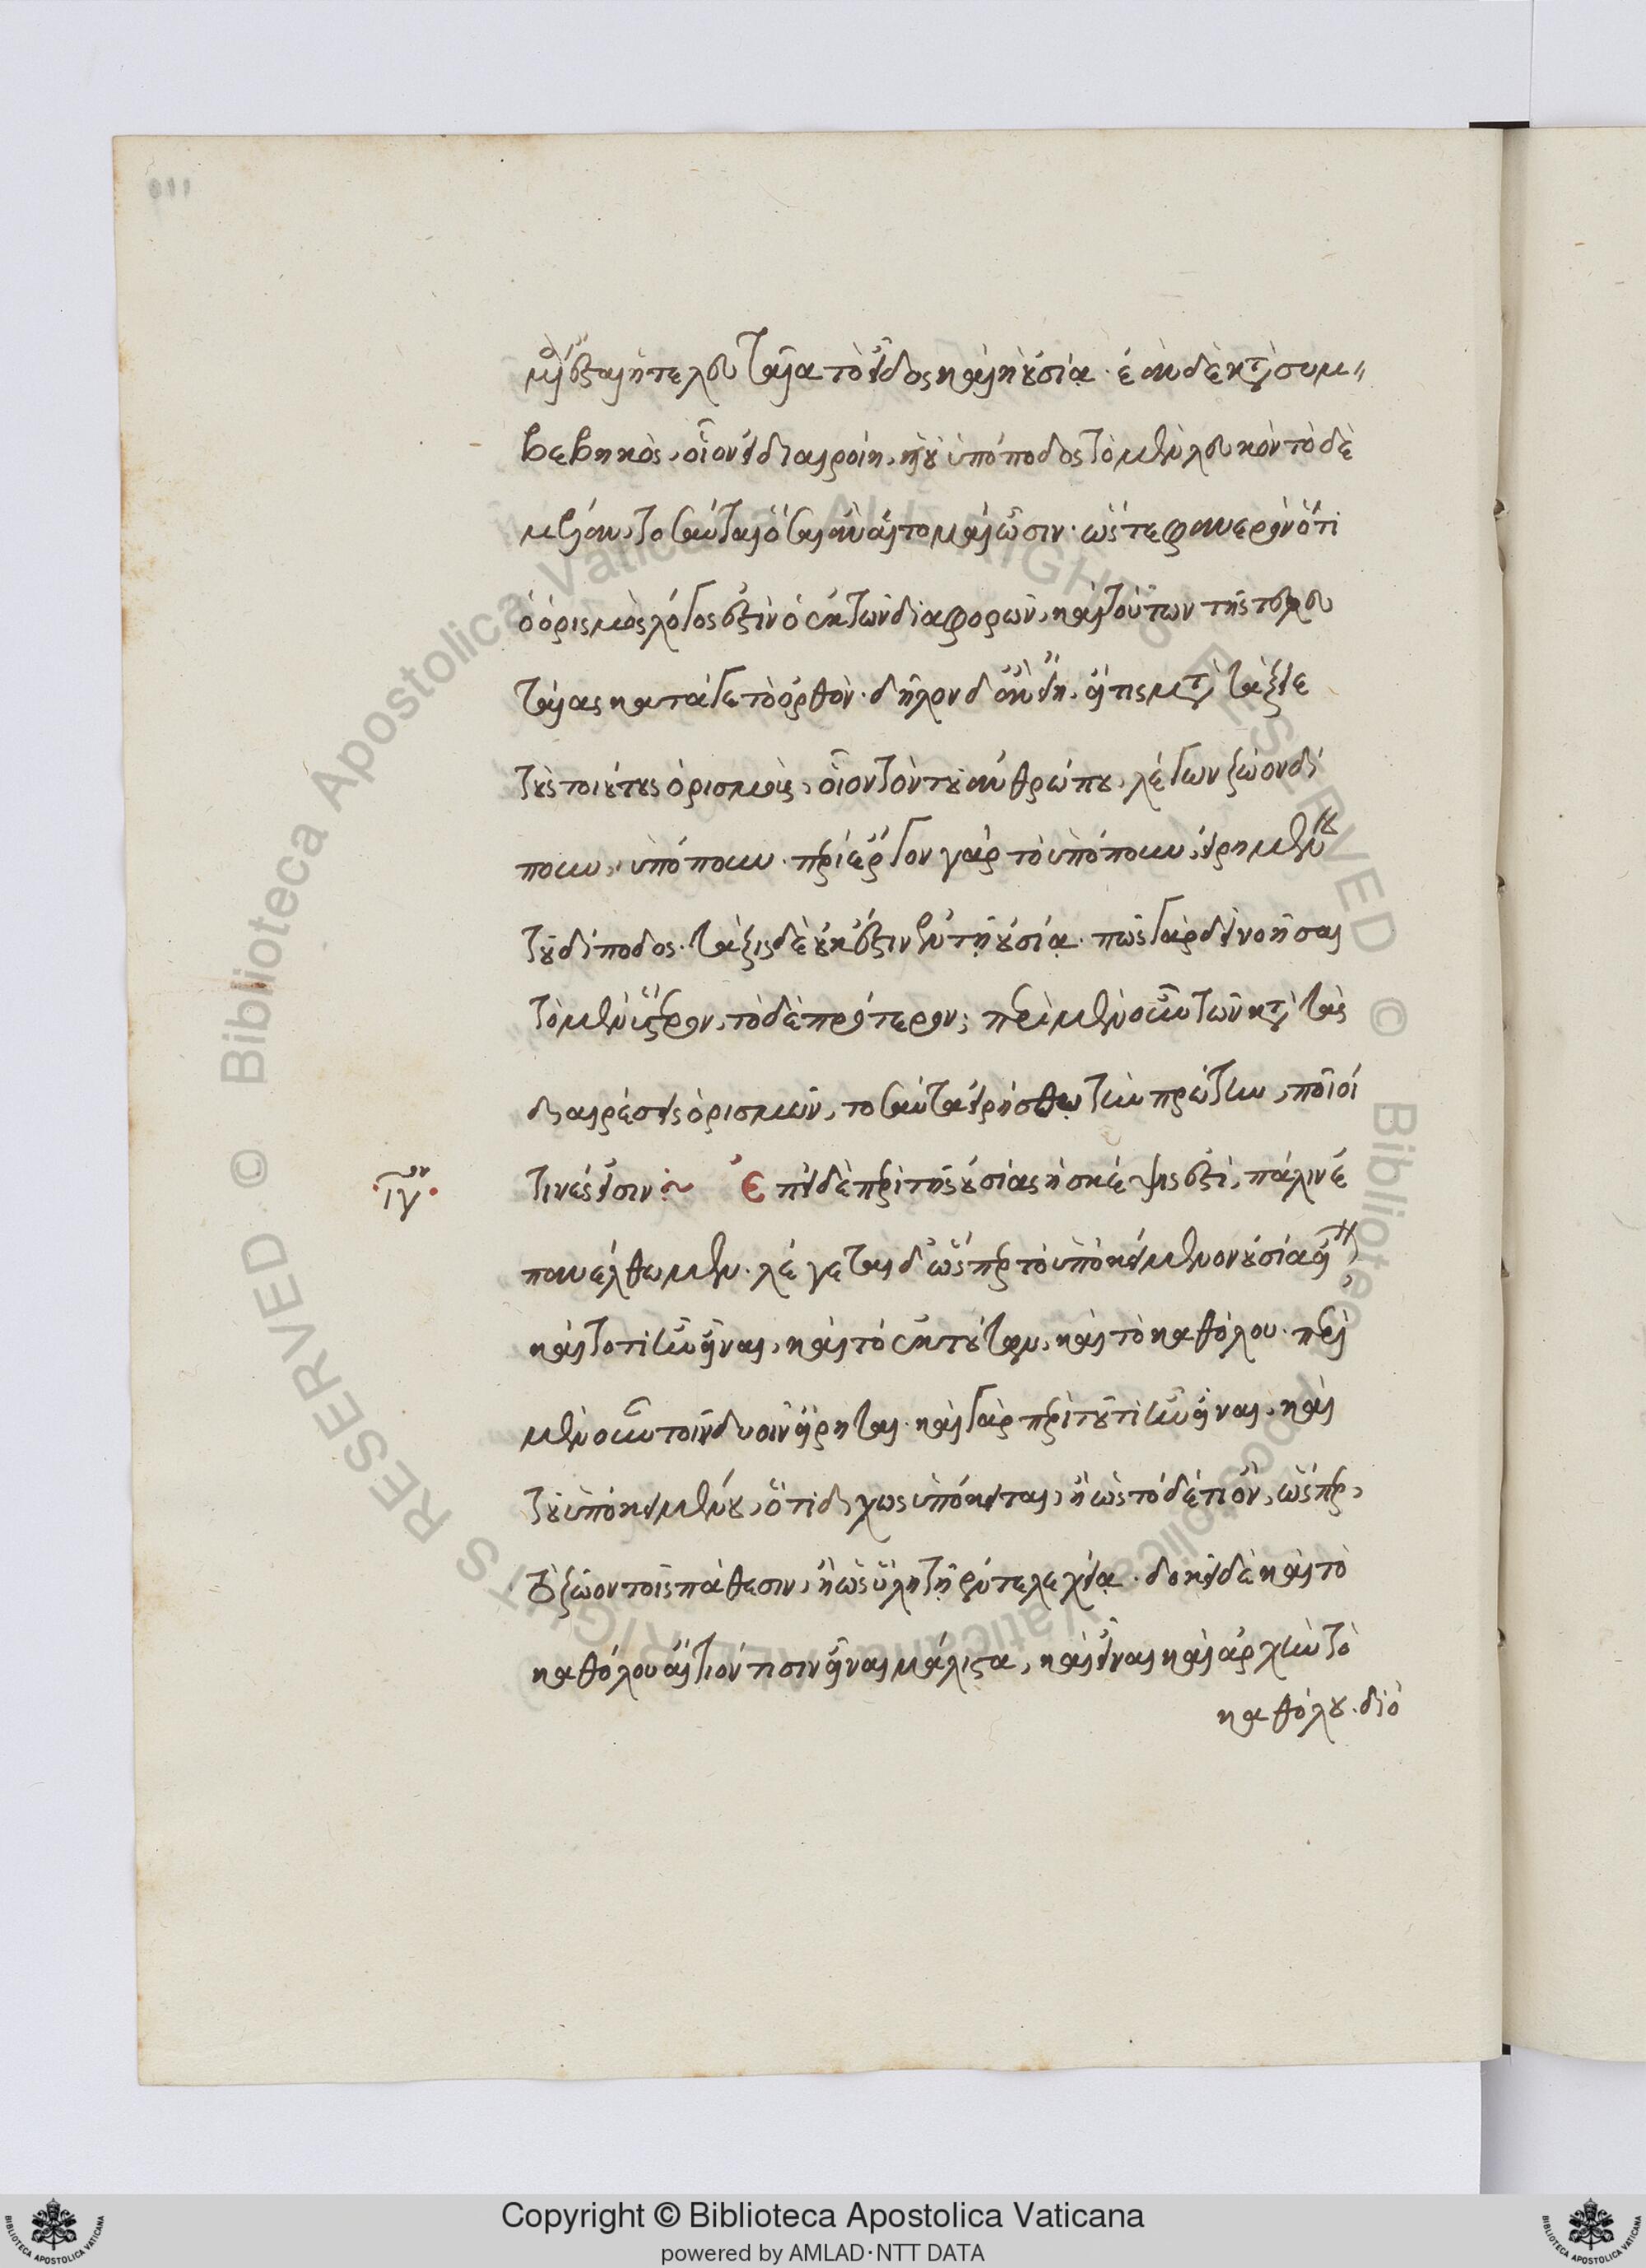 μία ἔσται ἡ τελευταία τὸ εἶδος καὶ ἡ οὐσία· ἐὰν δὲ κατὰ συμ
βεβηκὸς, οἷον εἰ διαιροίη, τοῦ ὑπόποδος τὸ μὲν λευκὸν τὸ δὲ
μέλαν, τοσαῦται ὅσαι ἂν αἱ τομαὶ ὦσιν· ὥστε φανερὸν ὅτι
ὁ ὁρισμὸς λόγος ἐστὶν ὁ ἐκ τῶν διαφορῶν, καὶ τούτων τῆς τελευ
ταίας κατά γε τὸ ὀρθόν· δῆλον δ' ἂν εἴη, εἴ τις μετατάξειε
τοὺς τοιούτους ὁρισμοὺς, οἷον τὸν τοῦ ἀνθρώπου, λέγων ζῶον δί
πουν, ὑπόπουν· περίεργον γὰρ τὸ ὑπόπουν, εἰρημένου
τοῦ δίποδος· τάξις δὲ οὐκ ἔστιν ἐν τῇ οὐσίᾳ· πῶς γὰρ δεῖ νοῆσαι
τὸ μὲν ὕστερον, τὸ δὲ πρότερον; περὶ μὲν οὖν τῶν κατὰ τὰς
διαιρέσεις ὁρισμῶν, τοσαῦτα εἰρήσθω τὴν πρώτην, ποῖοί
τινές εἰσιν:~ Ἐπεὶ δὲ περὶ τῆς οὐσίας ἡ σκέψις ἐστὶ, πάλιν ἐ
·ιγον·
πανέλθωμεν· λέγεται δ' ὥσπερ τὸ ὑποκείμενον οὐσία εἶναι,
καὶ τὸ τί ἦν εἶναι, καὶ τὸ ἐκ τούτων, καὶ τὸ καθόλου· περὶ
μὲν οὖν τοῖν δυοῖν εἴρηται· καὶ γὰρ περὶ τοῦ τί ἦν εἶναι, καὶ
τοῦ ὑποκειμένου, ὅτι διχῶς ὑπόκειται, ἢ ὡς τόδε τι ὂν, ὥσπερ,
τὸ ζῶον τοῖς πάθεσιν, ἢ ὡς ὕλη τῇ ἐντελεχείᾳ· δοκεῖ δὲ καὶ τὸ
καθόλου αἴτιόν τισιν εἶναι μάλιστα, καὶ εἶναι καὶ ἀρχὴν τὸ
καθόλου· διὸ